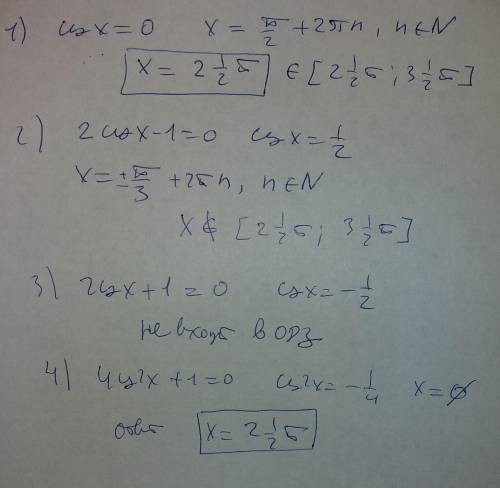 1) cos x = 0 x = π/2 + 2πn, n ∈ N
x = 2 1/2 π ∈ [2 1/2 π; 3 1/2 π]
2) 2cos x - 1 = 0 cos x = 1/2
x = ±π/3 + 2πn, n ∈ N
x ∉ [2 1/2 π; 3 1/2 π]
3) 2cos x + 1 = 0 cos x = - 1/2
не входит в ОДЗ
4) 4cos²x + 1 = 0 cos²x = - 1/4 x = ∅
ответ x = 2 1/2 π